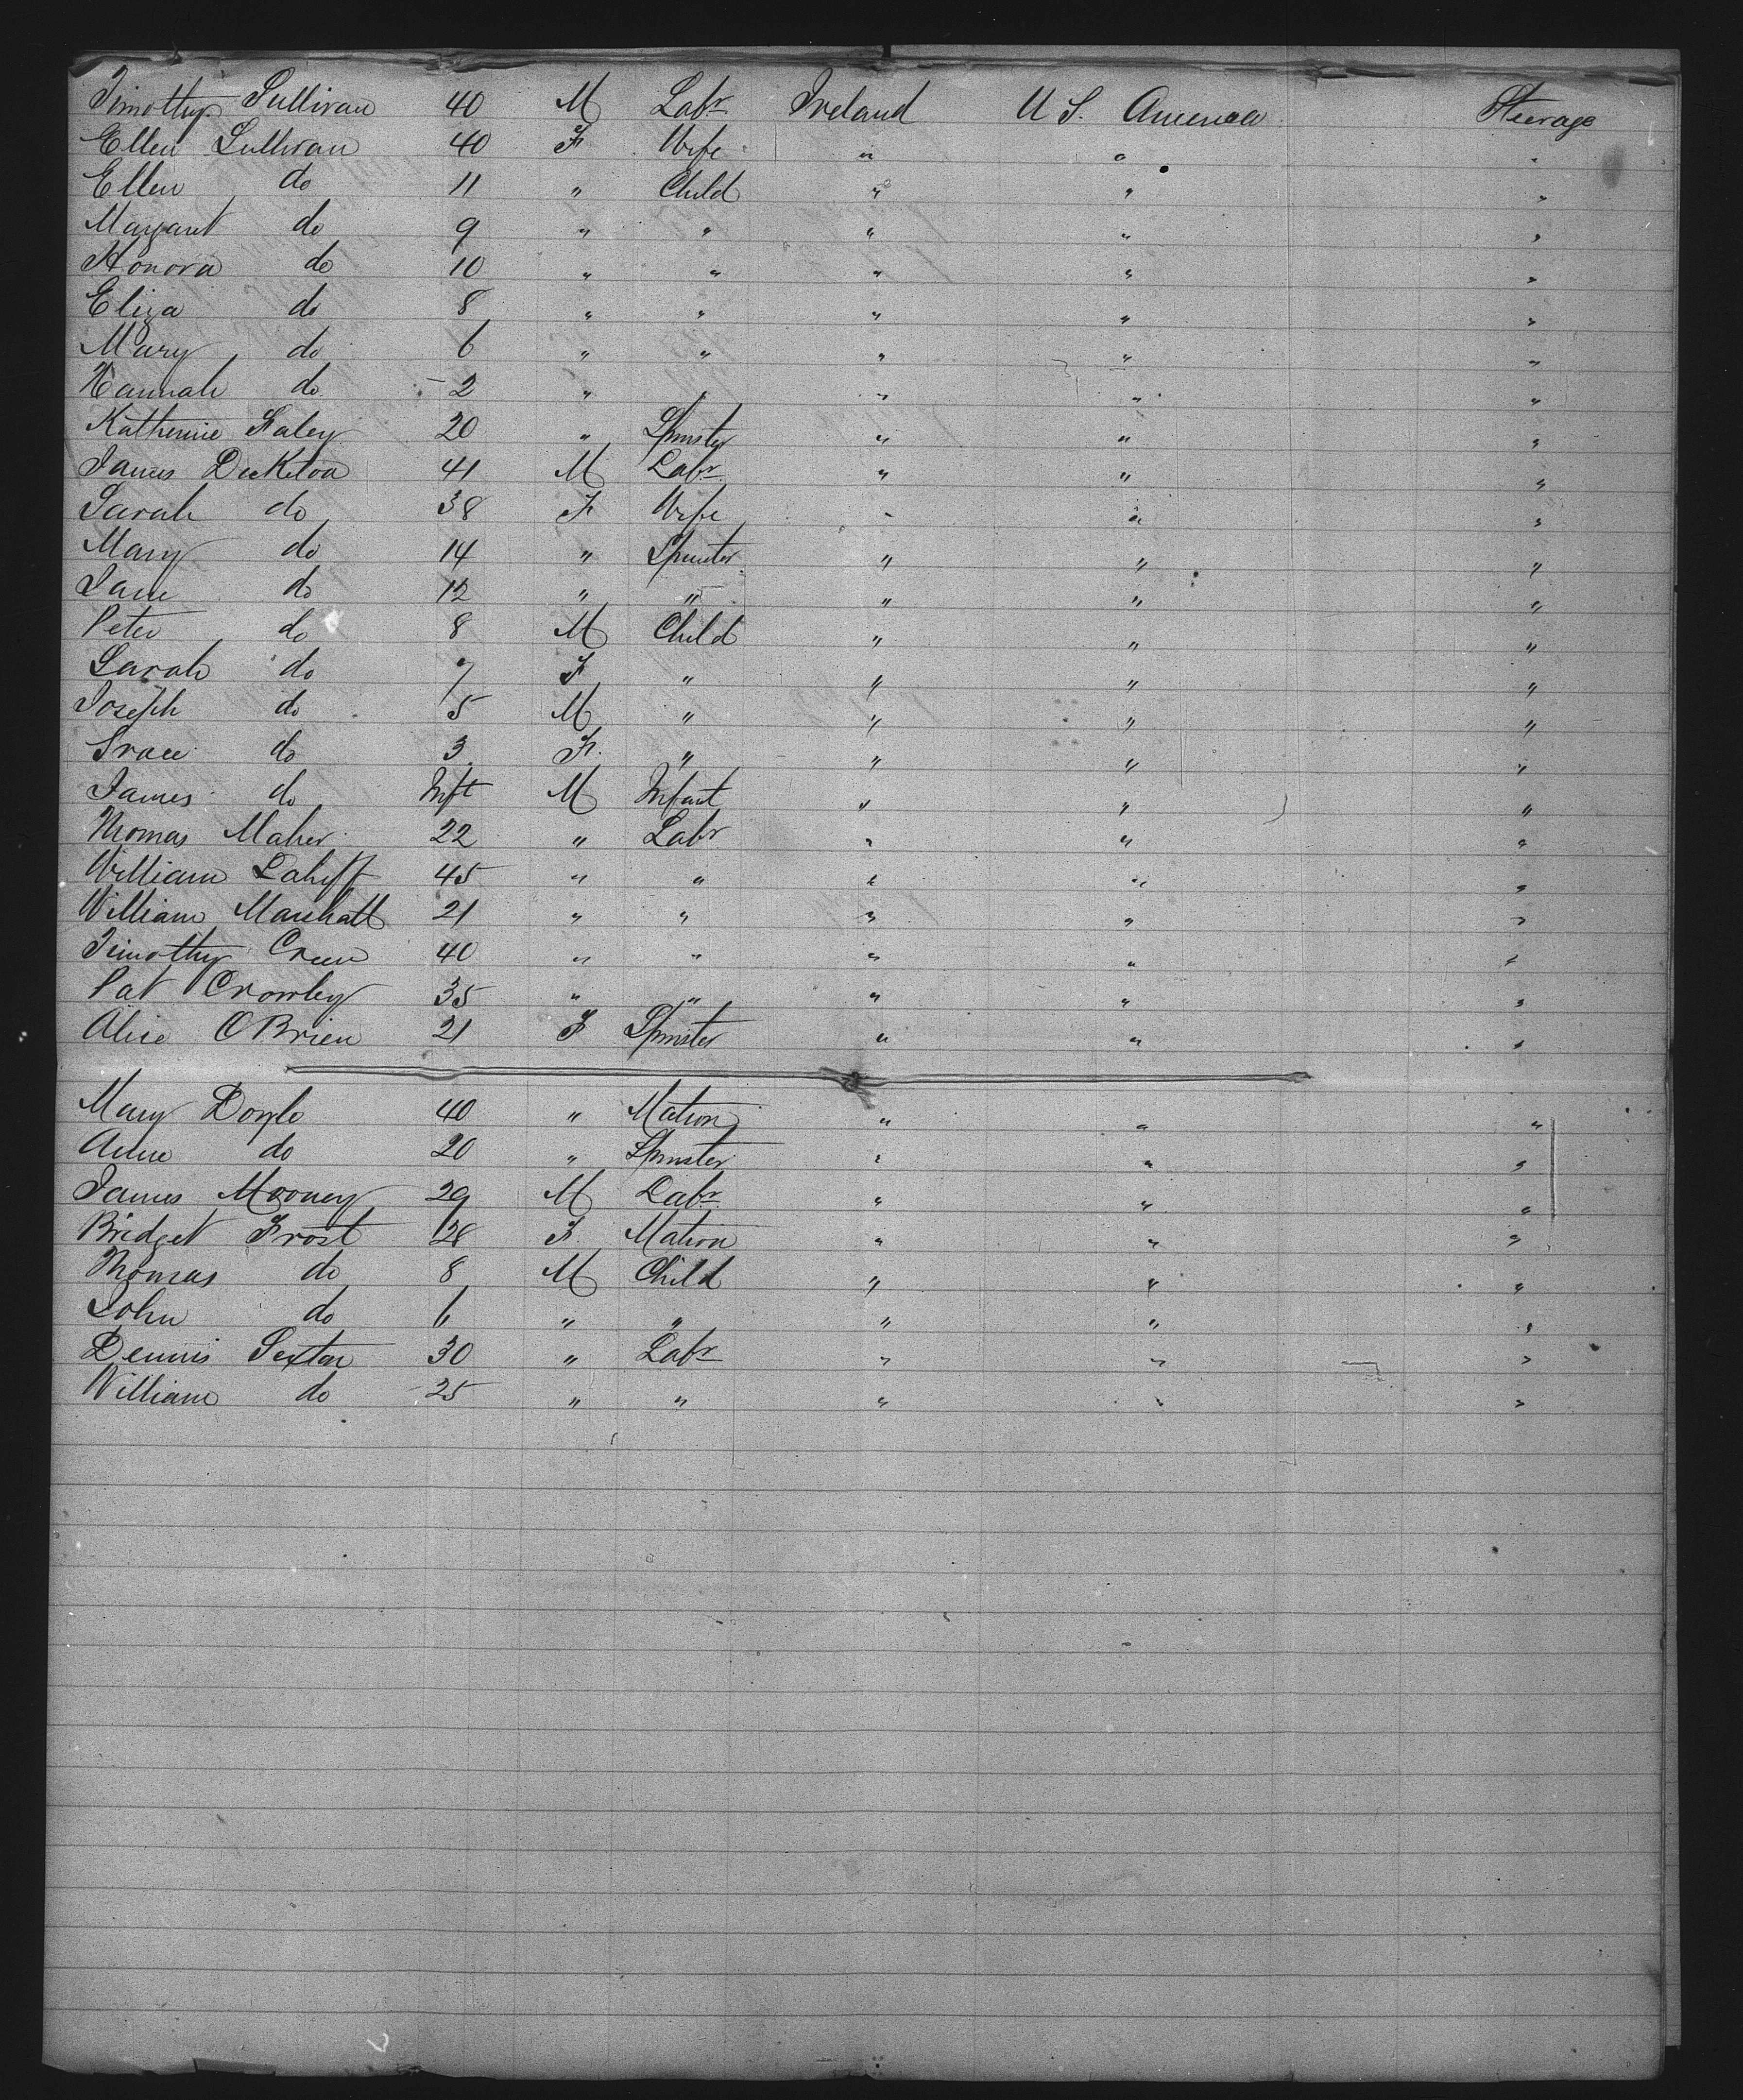 Timothy Sullivan 40 M Labr Ireland U S. America Steerage
Ellen Sullivan 40 F Wife " " "
Ellen do 11 " Child " " "
Margaret do 9 " " " " "
Honora do 10 " " " " "
Eliza do 8 " " " " "
Mary do 6 " " " " "
Hannah do 2 " " " " "
Katherine Faley 20 " Spinster " " "
James 41 M Labr " " "
Sarah do 38 F Wife " " "
Mary do 14 " Spinster " " "
Jane do 12 " " " " "
Peter do 8 M Child " " "
Sarah do 7 F " " " "
Joseph do 5 M " " " "
Grace do 3 F. " " " "
James do Inft M Infant " " "
Thomas Maher 22 " Labr " " "
William Lahiff 45 " " " " "
William Marshall 21 " " " " "
Timothy Creen 40 " " " " "
Pat Crowley 35 " " " " "
Alice O Brien 21 F Spinster " " "
Mary Doyle 40 " Matron " " "
Anne do 20 " Spinster " " "
James Mooney 29 M Labr " " "
Bridget Frost 28 F. Matron " " "
Thomas do 8 M Child " " "
John do 6 " " " " "
Dennis Sexton 30 " Labr " " "
William do 25 " " " " "